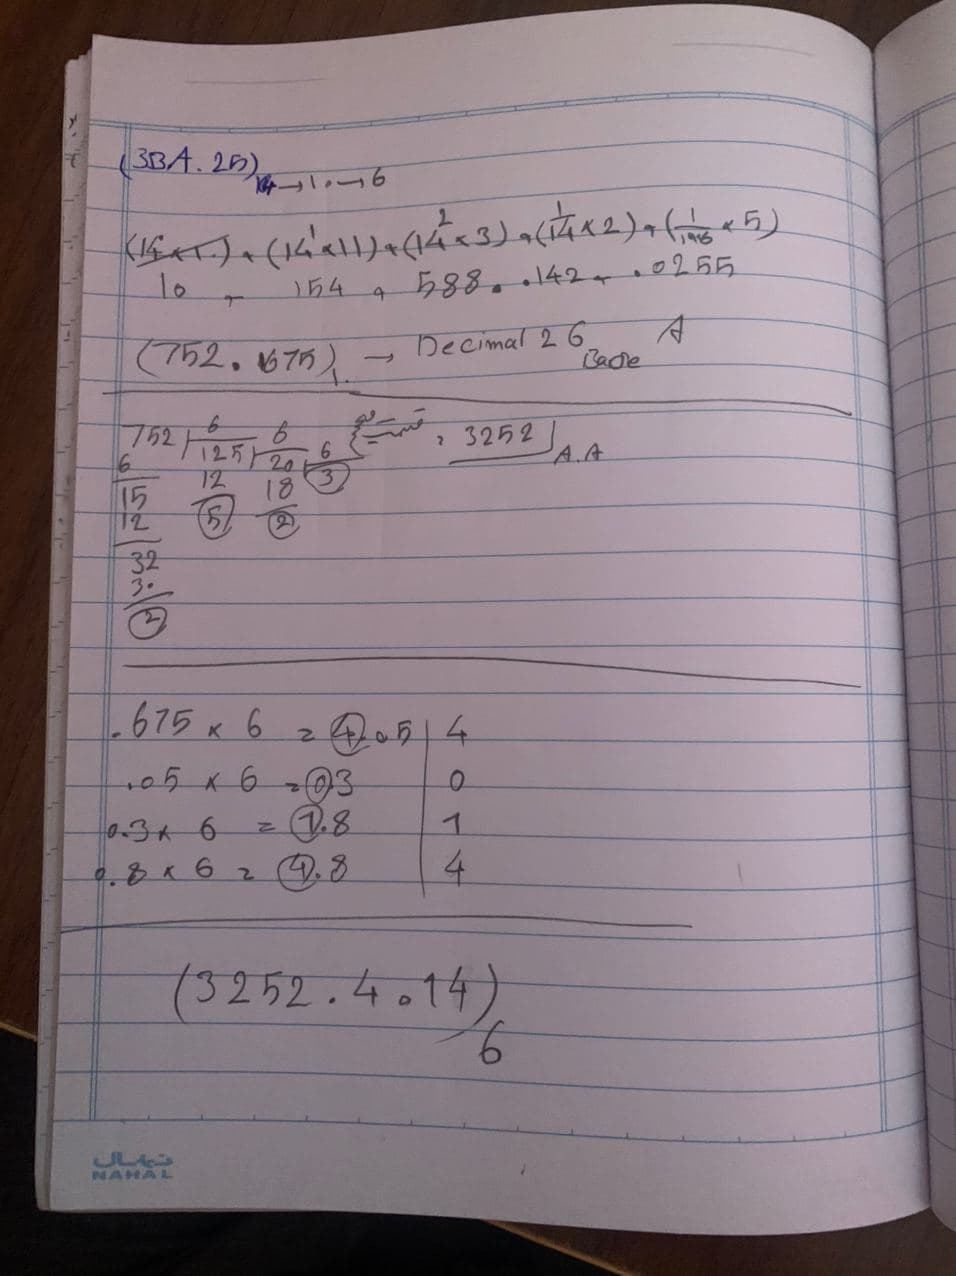 (3BA.25)14→10→6
(14⁰×10)+(14¹×11)+(14²×3)+(1/14×2)+(1/196×5)
10 + 154 + 588 + .142 + .0255
(752.675)10 → Decimal 26 Base A
752 | 6
125 | 6
20 | 6
3
= 3252 A.A
6 12 18
15 5 2
12
32
30
2
.675 × 6 = 4.05 | 4
.05 × 6 = 0.3 | 0
0.3 × 6 = 1.8 | 1
0.8 × 6 = 4.8 | 4
(3252.4014)6
نهال
NAHAL